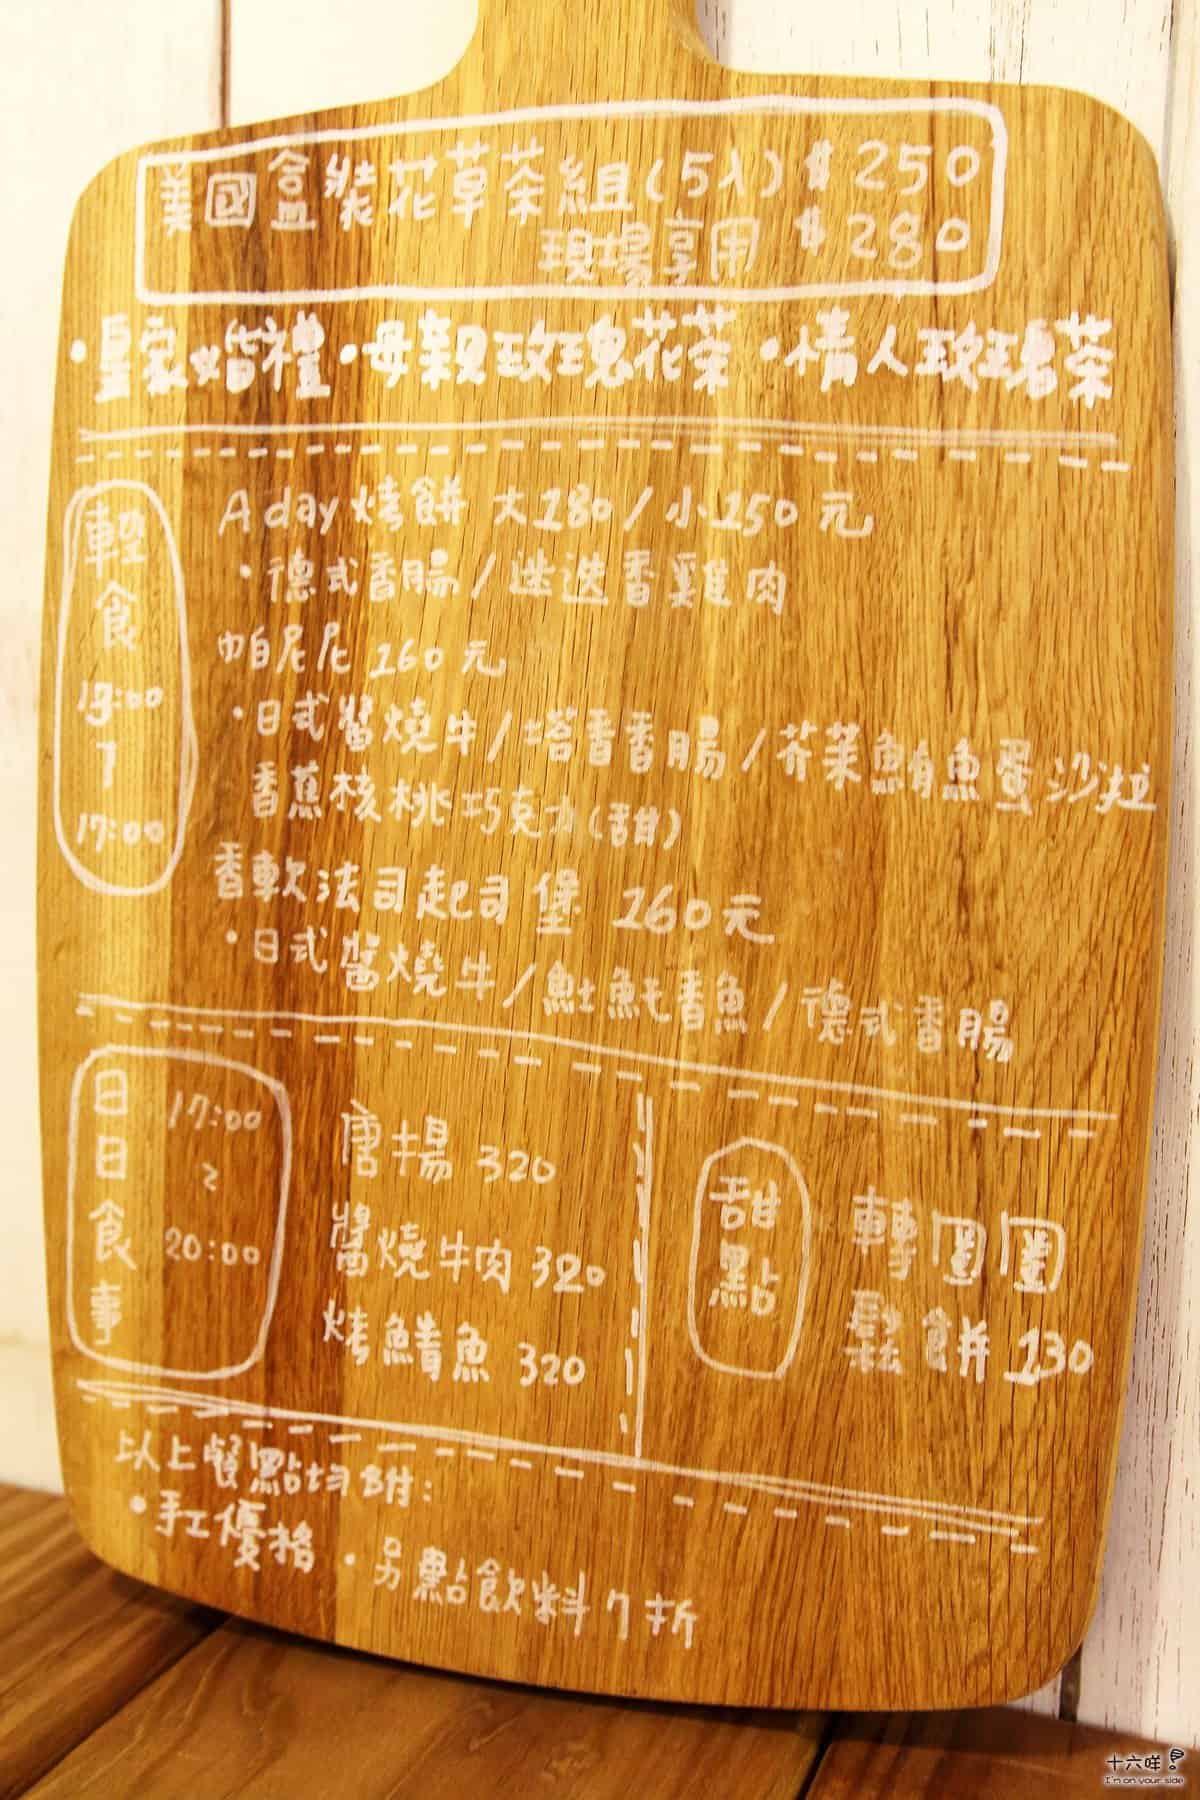 美國盒裝花草茶組(5入)$250
現場享用 $280
•皇家婚禮•母親玫瑰花茶•情人玫瑰茶
輕食
13:00
~
17:00
A day 烤餅 大180/小150元
•德式香腸/迷迭香雞肉
帕尼尼 160元
•日式醬燒牛/塔香香腸/芥茉鮪魚蛋沙拉
香蕉核桃巧克力(甜)
香軟法司起司堡 160元
•日式醬燒牛/魠香魚/德式香腸
日日食事
17:00
~
20:00
唐揚 320
醬燒牛肉 320
烤鯖魚 320
甜點
轉圈圈
鬆餅 130
以上餐點均附:
•手工優格 •另點飲料7折
十六咩
I'm on your side